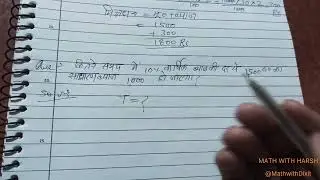 मिश्रधन = मूलधन + ब्याज
= 1500
+ 300
1800 Rs
Que :- कितने समय में 10% वार्षिक ब्याज की दर से 1500 का
साधारण ब्याज 1000 हो जाएगा ?
T = ?
MATH WITH HARSH
@MathwithDixit